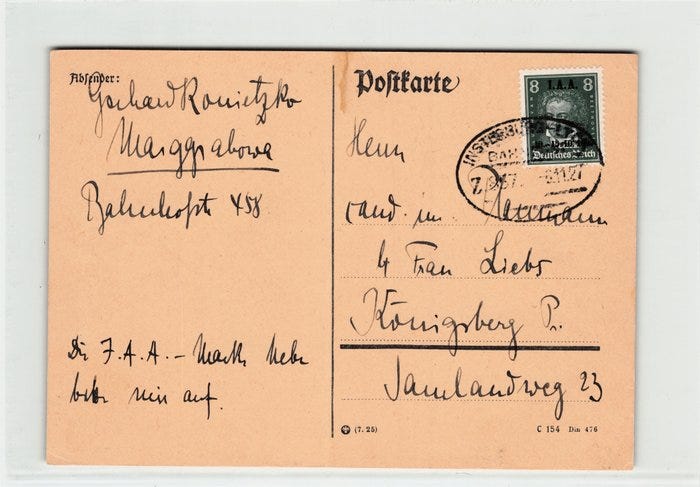 Absender:
Gerhard Konietzko
Marggrabowa
Bahnhofstr 458
Die I.A.A. - Marke hebe
bitte mir auf.
Postkarte
8 I.A.A. 8
10.-15.10.1927
Deutsches Reich
INSTERBURG-LYCK
BAHNPOST
Z. 937 -6.11.27
Herrn
cand. in.
b Frau Liebs
Königsberg Pr.
Samlandweg 23
(7. 25)
C 154 Din 476